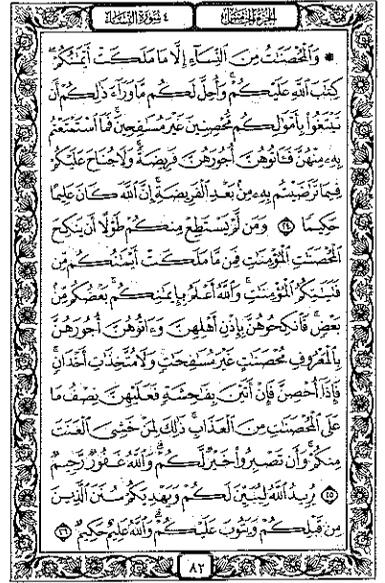 الجزء الخامس ٤ سورة النساء
۞ وَالْمُحْصَنَاتُ مِنَ النِّسَاءِ إِلَّا مَا مَلَكَتْ أَيْمَانُكُمْ
كِتَابَ اللَّهِ عَلَيْكُمْ وَأُحِلَّ لَكُم مَّا وَرَاءَ ذَٰلِكُمْ أَن
تَبْتَغُوا بِأَمْوَالِكُم مُّحْصِنِينَ غَيْرَ مُسَافِحِينَ فَمَا اسْتَمْتَعْتُم
بِهِ مِنْهُنَّ فَآتُوهُنَّ أُجُورَهُنَّ فَرِيضَةً وَلَا جُنَاحَ عَلَيْكُمْ
فِيمَا تَرَاضَيْتُم بِهِ مِن بَعْدِ الْفَرِيضَةِ إِنَّ اللَّهَ كَانَ عَلِيمًا
حَكِيمًا ٢٤ وَمَن لَّمْ يَسْتَطِعْ مِنكُمْ طَوْلًا أَن يَنكِحَ
الْمُحْصَنَاتِ الْمُؤْمِنَاتِ فَمِن مَّا مَلَكَتْ أَيْمَانُكُم مِّن
فَتَيَاتِكُمُ الْمُؤْمِنَاتِ وَاللَّهُ أَعْلَمُ بِإِيمَانِكُم بَعْضُكُم مِّن
بَعْضٍ فَانكِحُوهُنَّ بِإِذْنِ أَهْلِهِنَّ وَآتُوهُنَّ أُجُورَهُنَّ
بِالْمَعْرُوفِ مُحْصَنَاتٍ غَيْرَ مُسَافِحَاتٍ وَلَا مُتَّخِذَاتِ أَخْدَانٍ
فَإِذَا أُحْصِنَّ فَإِنْ أَتَيْنَ بِفَاحِشَةٍ فَعَلَيْهِنَّ نِصْفُ مَا
عَلَى الْمُحْصَنَاتِ مِنَ الْعَذَابِ ذَٰلِكَ لِمَنْ خَشِيَ الْعَنَتَ
مِنكُمْ وَأَن تَصْبِرُوا خَيْرٌ لَّكُمْ وَاللَّهُ غَفُورٌ رَّحِيمٌ
٢٥ يُرِيدُ اللَّهُ لِيُبَيِّنَ لَكُمْ وَيَهْدِيَكُمْ سُنَنَ الَّذِينَ
مِن قَبْلِكُمْ وَيَتُوبَ عَلَيْكُمْ وَاللَّهُ عَلِيمٌ حَكِيمٌ ٢٦
٨٢